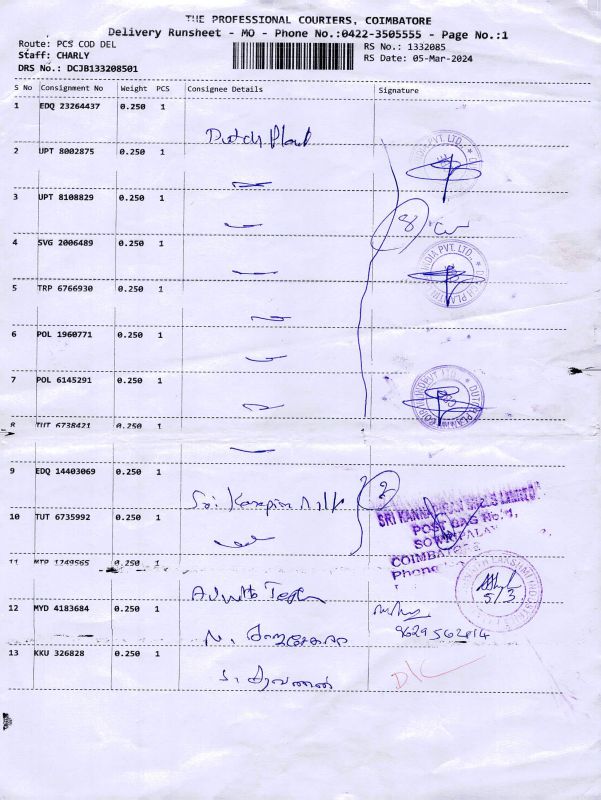 THE PROFESSIONAL COURIERS, COIMBATORE
Delivery Runsheet - MO - Phone No.:0422-3505555 - Page No.:1
Route: PCS COD DEL
RS No.: 1332085
Staff: CHARLY
RS Date: 05-Mar-2024
DRS No.: DCJB133208501
S No Consignment No Weight PCS Consignee Details Signature
1 EDQ 23264437 0.250 1
Dutch Plant
2 UPT 8002875 0.250 1
3 UPT 8108829 0.250 1
8
4 SVG 2006489 0.250 1
5 TRP 6766930 0.250 1
6 POL 1960771 0.250 1
7 POL 6145291 0.250 1
8 TUT 6738421 0.250 1
9 EDQ 14403069 0.250 1
2
Sri
10 TUT 6735992 0.250 1
SRI KANNAPIRAN MILLS LIMITED
POST BAG No.
COIMBATORE
Phone
11 MTP 1749565 0.250 1
5/3
12 MYD 4183684 0.250 1
N.
13 KKU 326828 0.250 1
S. சரவணன்
D/C